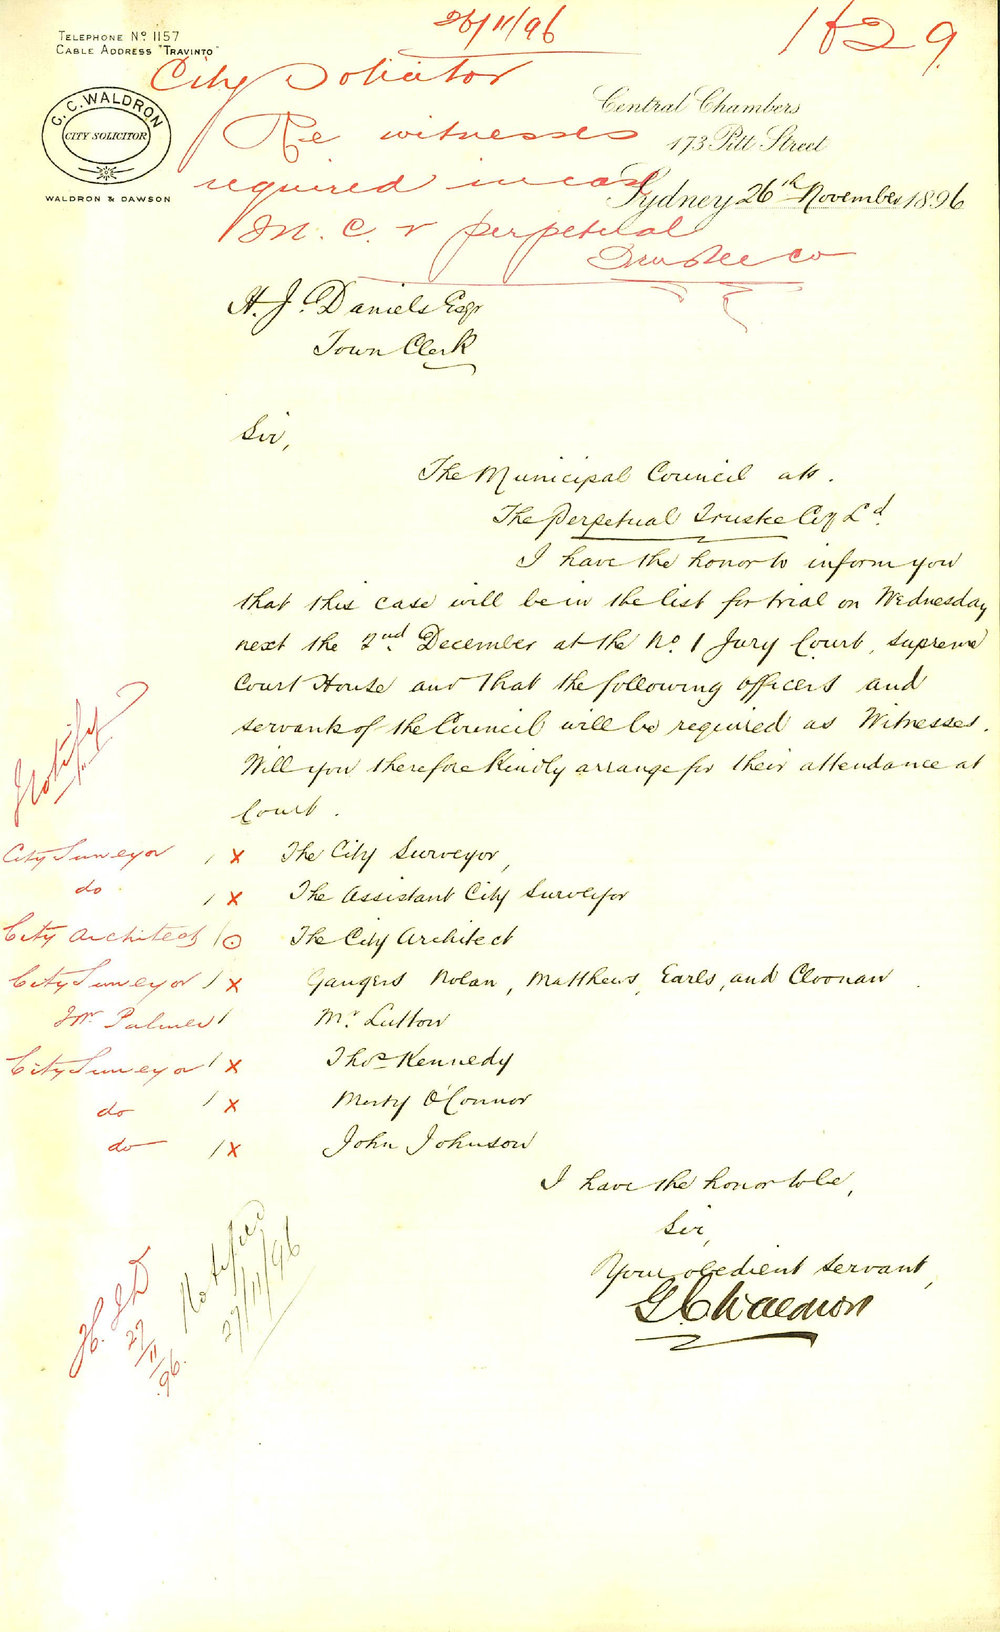 26/11/96
1829
TELEPHONE No 1157
CABLE ADDRESS "TRAVINTO"
City Solicitor
G. C. WALDRON
CITY SOLICITOR
WALDRON & DAWSON
Central Chambers
173 Pitt Street
Re witnesses
required in case
Sydney 26th November 1896
M. C. v perpetual
Trustee Co
H. J. Daniels Esqr
Town Clerk
Sir,
The Municipal Council ats.
The Perpetual Trustee Coy Ld.
I have the honor to inform you
that this case will be in the list for trial on Wednesday
next the 2nd December at the No. 1 Jury Court, Supreme
Court House and that the following officers and
servants of the Council will be required as Witnesses.
Will you therefore kindly arrange for their attendance at
Court.
Notify
City Surveyor / x The City Surveyor,
do / x The Assistant City Surveyor
City Architect / The City Architect
City Surveyor / x Gangers Nolan, Matthews, Earls, and Cloonan
Mr Palmer / Mr. Lutton
City Surveyor / x Thos Kennedy
do / x Morty O'Connor
do / x John Johnson
I have the honor to be,
Sir,
Your obedient servant,
G C Waldron
H. J. D
27/11/96.
Notified
27/11/96